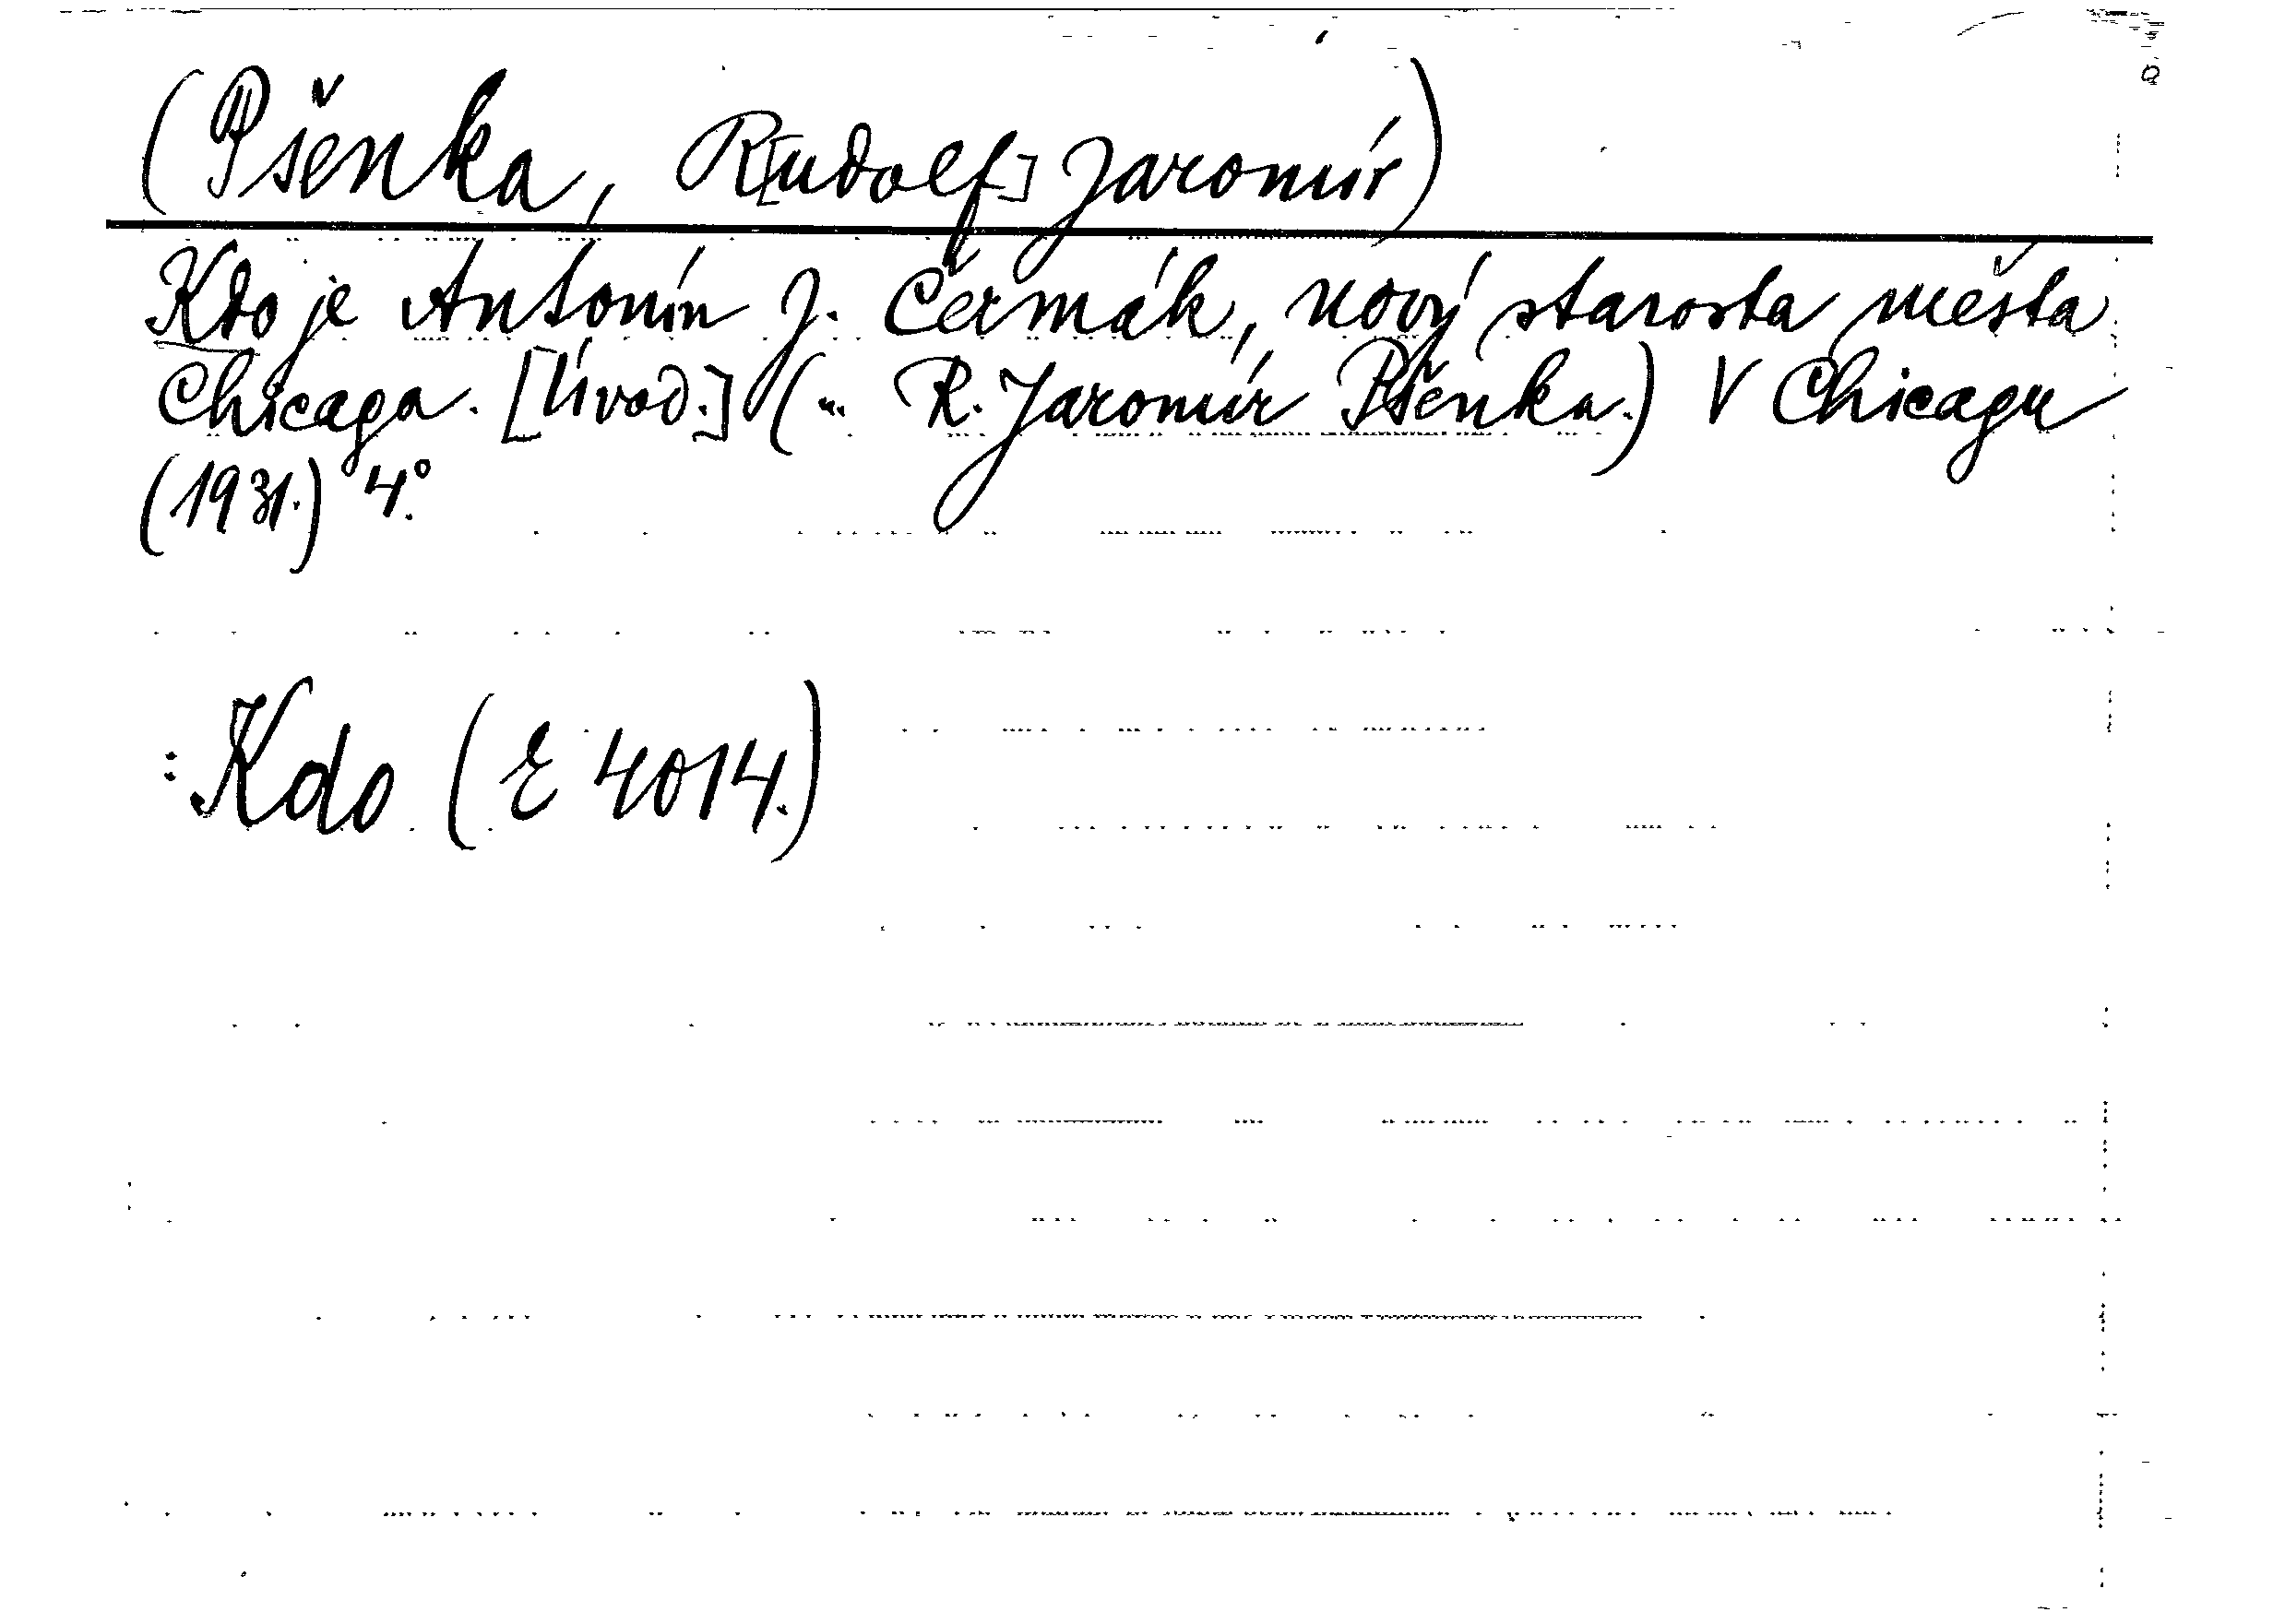 (Pšenka, R[udolf] Jaromír)
Kdo je Antonín J. Čermák, nový starosta města
Chicaga. [Úvod.] (... R. Jaromír Pšenka.) V Chicagu
(1931.) 4°.
: Kdo (E 4014.)